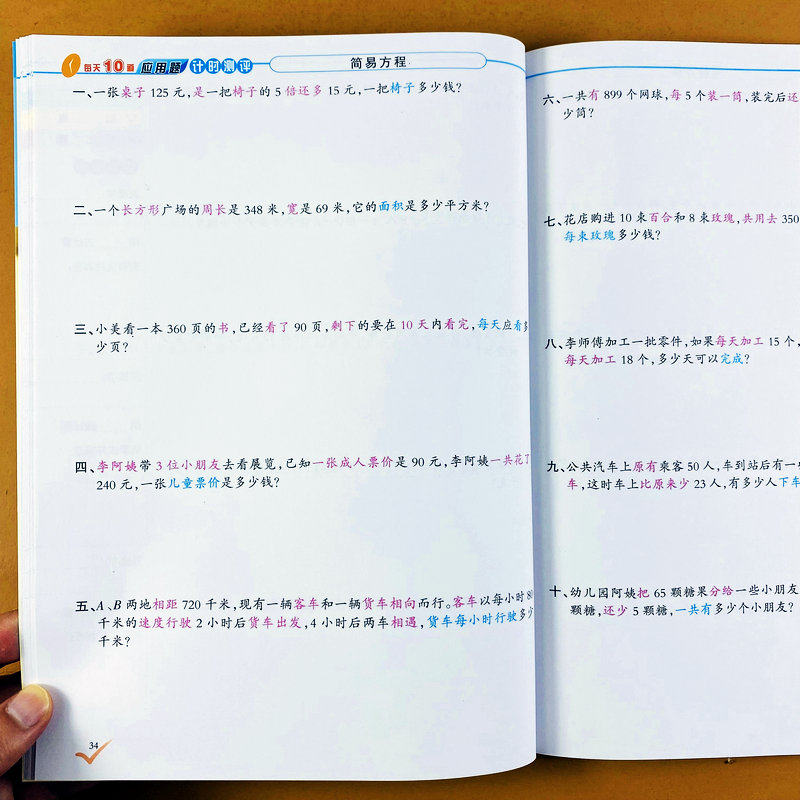 每天10道 应用题 计时测评 简易方程
一、一张桌子 125 元,是一把椅子的 5 倍还多 15 元,一把椅子多少钱?
二、一个长方形广场的周长是 348 米,宽是 69 米,它的面积是多少平方米?
三、小美看一本 360 页的书,已经看了 90 页,剩下的要在 10 天内看完,每天应看多
少页?
四、李阿姨带 3 位小朋友去看展览,已知一张成人票价是 90 元,李阿姨一共花了
240 元,一张儿童票价是多少钱?
五、A、B 两地相距 720 千米,现有一辆客车和一辆货车相向而行。客车以每小时 80
千米的速度行驶 2 小时后货车出发,4 小时后两车相遇,货车每小时行驶多少
千米?
34
六、一共有 899 个网球,每 5 个装一筒,装完后还
少筒?
七、花店购进 10 束百合和 8 束玫瑰,共用去 350
每束玫瑰多少钱?
八、李师傅加工一批零件,如果每天加工 15 个,
每天加工 18 个,多少天可以完成?
九、公共汽车上原有乘客 50 人,车到站后有一些
车,这时车上比原来少 23 人,有多少人下车
十、幼儿园阿姨把 65 颗糖果分给一些小朋友
颗糖,还少 5 颗糖,一共有多少个小朋友?